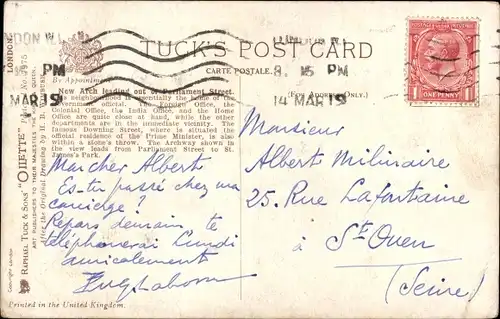 LONDON W.1
TUCK'S POST CARD
CARTE POSTALE.
By Appointment.
(For Address Only.)
8. 15 PM
14 MAR 19
PM
MAR 19
POSTAGE REVENUE
1 ONE PENNY 1
New Arch leading out of Parliament Street.
The neighbourhood is essentially the home of the
Government official. The Foreign Office, the
Colonial Office, the India Office, and the Home
Office are quite close at hand, while the other
departments are in the immediate vicinity. The
famous Downing Street, where is situated the
official residence of the Prime Minister, is also
within a stone's throw. The Archway shown in
the view leads from Parliament Street to St.
James's Park.
Mon cher Albert
Es-tu passé chez ma
concierge ?
Repars demain te
téléphonerai Lundi
amicalement
Monsieur
Alberts Militaire
25, Rue Lafontaine
à St Ouen
(Seine)
RAPHAEL TUCK & SONS' "OILETTE"
ART PUBLISHERS TO THEIR MAJESTIES THE KING AND QUEEN.
Copyright London
Printed in the United Kingdom.